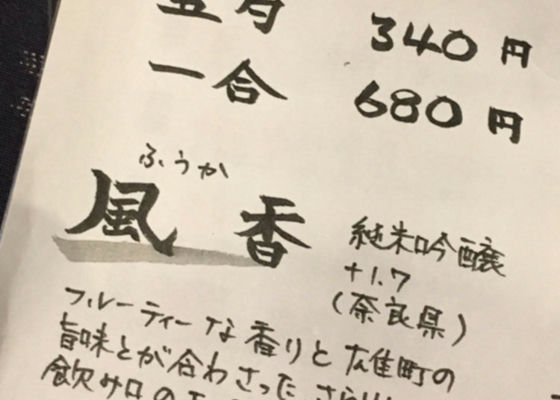 五勺 340円
一合 680円
ふうか
風香
純米吟醸
+1.7
(奈良県)
フルーティーな香りと雄町の
旨味とが合わさったさらり
飲み口の